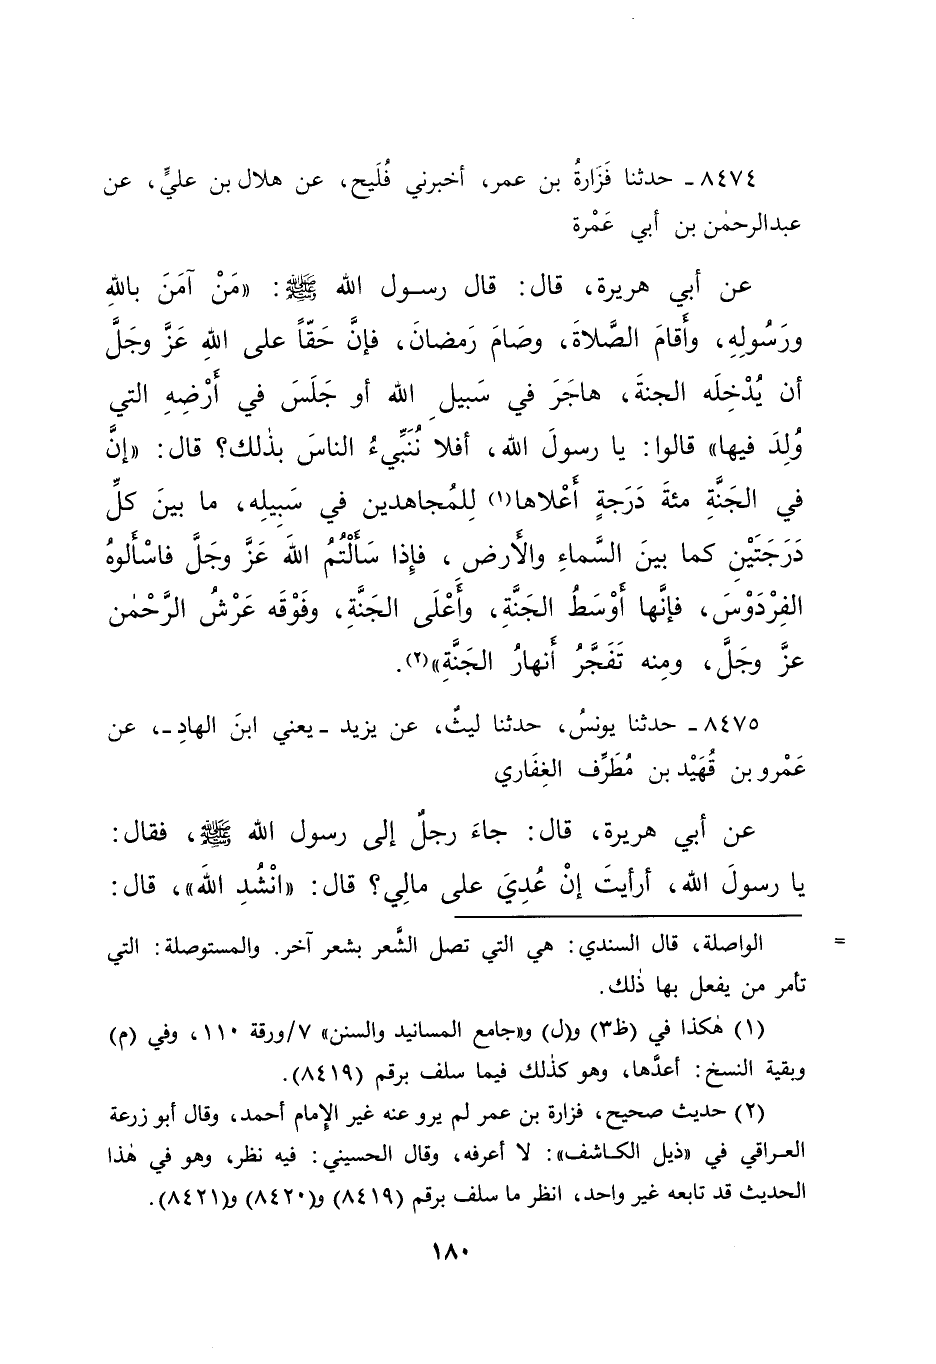 ٨٤٧٤ ـ حدثنا فَزَارةُ بن عمر، أخبرني فُلَيح، عن هلال بن عليٍّ، عن
عبدالرحمٰن بن أبي عَمْرة
عن أبي هريرة، قال: قال رسول الله ﷺ: «مَنْ آمَنَ بالله
ورَسُولِهِ، وأَقامَ الصَّلاةَ، وصَامَ رَمضانَ، فإنَّ حَقّاً على اللهِ عَزَّ وجَلَّ
أن يُدْخِلَه الجنةَ، هاجَرَ في سَبيلِ الله أو جَلَسَ في أَرْضِهِ التي
وُلِدَ فيها» قالوا: يا رسولَ الله، أفلا نُنَبِّيءُ الناسَ بذٰلك؟ قال: «إنَّ
في الجَنَّةِ مئةَ دَرَجةٍ أَعْلاها(١) لِلمُجاهدين في سَبِيلِه، ما بينَ كلِّ
دَرَجَتَيْنِ كما بينَ السَّماءِ والأَرضِ، فإذا سَأَلْتُمُ اللهَ عَزَّ وجَلَّ فاسْأَلوهُ
الفِرْدَوْسَ، فإنَّها أَوْسَطُ الجَنَّةِ، وأَعْلَى الجَنَّةِ، وفَوْقَه عَرْشُ الرَّحْمٰن
عزَّ وجَلَّ، ومِنه تَفَجَّرُ أَنهارُ الجَنَّةِ»(٢).
٨٤٧٥ ـ حدثنا يونسُ، حدثنا ليثٌ، عن يزيد ـ يعني ابنَ الهادِ ـ، عن
عَمْرو بن قُهَيْد بن مُطَرِّف الغِفَاري
عن أبي هريرة، قال: جاءَ رجلٌ إلى رسول الله ﷺ، فقال:
يا رسولَ الله، أرأيتَ إنْ عُدِيَ على مالِي؟ قال: «انْشُدِ اللهَ»، قال:
= الواصلة، قال السندي: هي التي تصل الشَّعر بشعر آخر. والمستوصلة: التي
تأمر من يفعل بها ذٰلك.
(١) هٰكذا في (ظ٣) و(ل) و«جامع المسانيد والسنن» ٧/ورقة ١١٠، وفي (م)
وبقية النسخ: أعدَّها، وهو كذٰلك فيما سلف برقم (٨٤١٩).
(٢) حديث صحيح، فزارة بن عمر لم يرو عنه غير الإمام أحمد، وقال أبو زرعة
العراقي في «ذيل الكاشف»: لا أعرفه، وقال الحسيني: فيه نظر، وهو في هٰذا
الحديث قد تابعه غير واحد، انظر ما سلف برقم (٨٤١٩) و(٨٤٢٠) و(٨٤٢١).
١٨٠